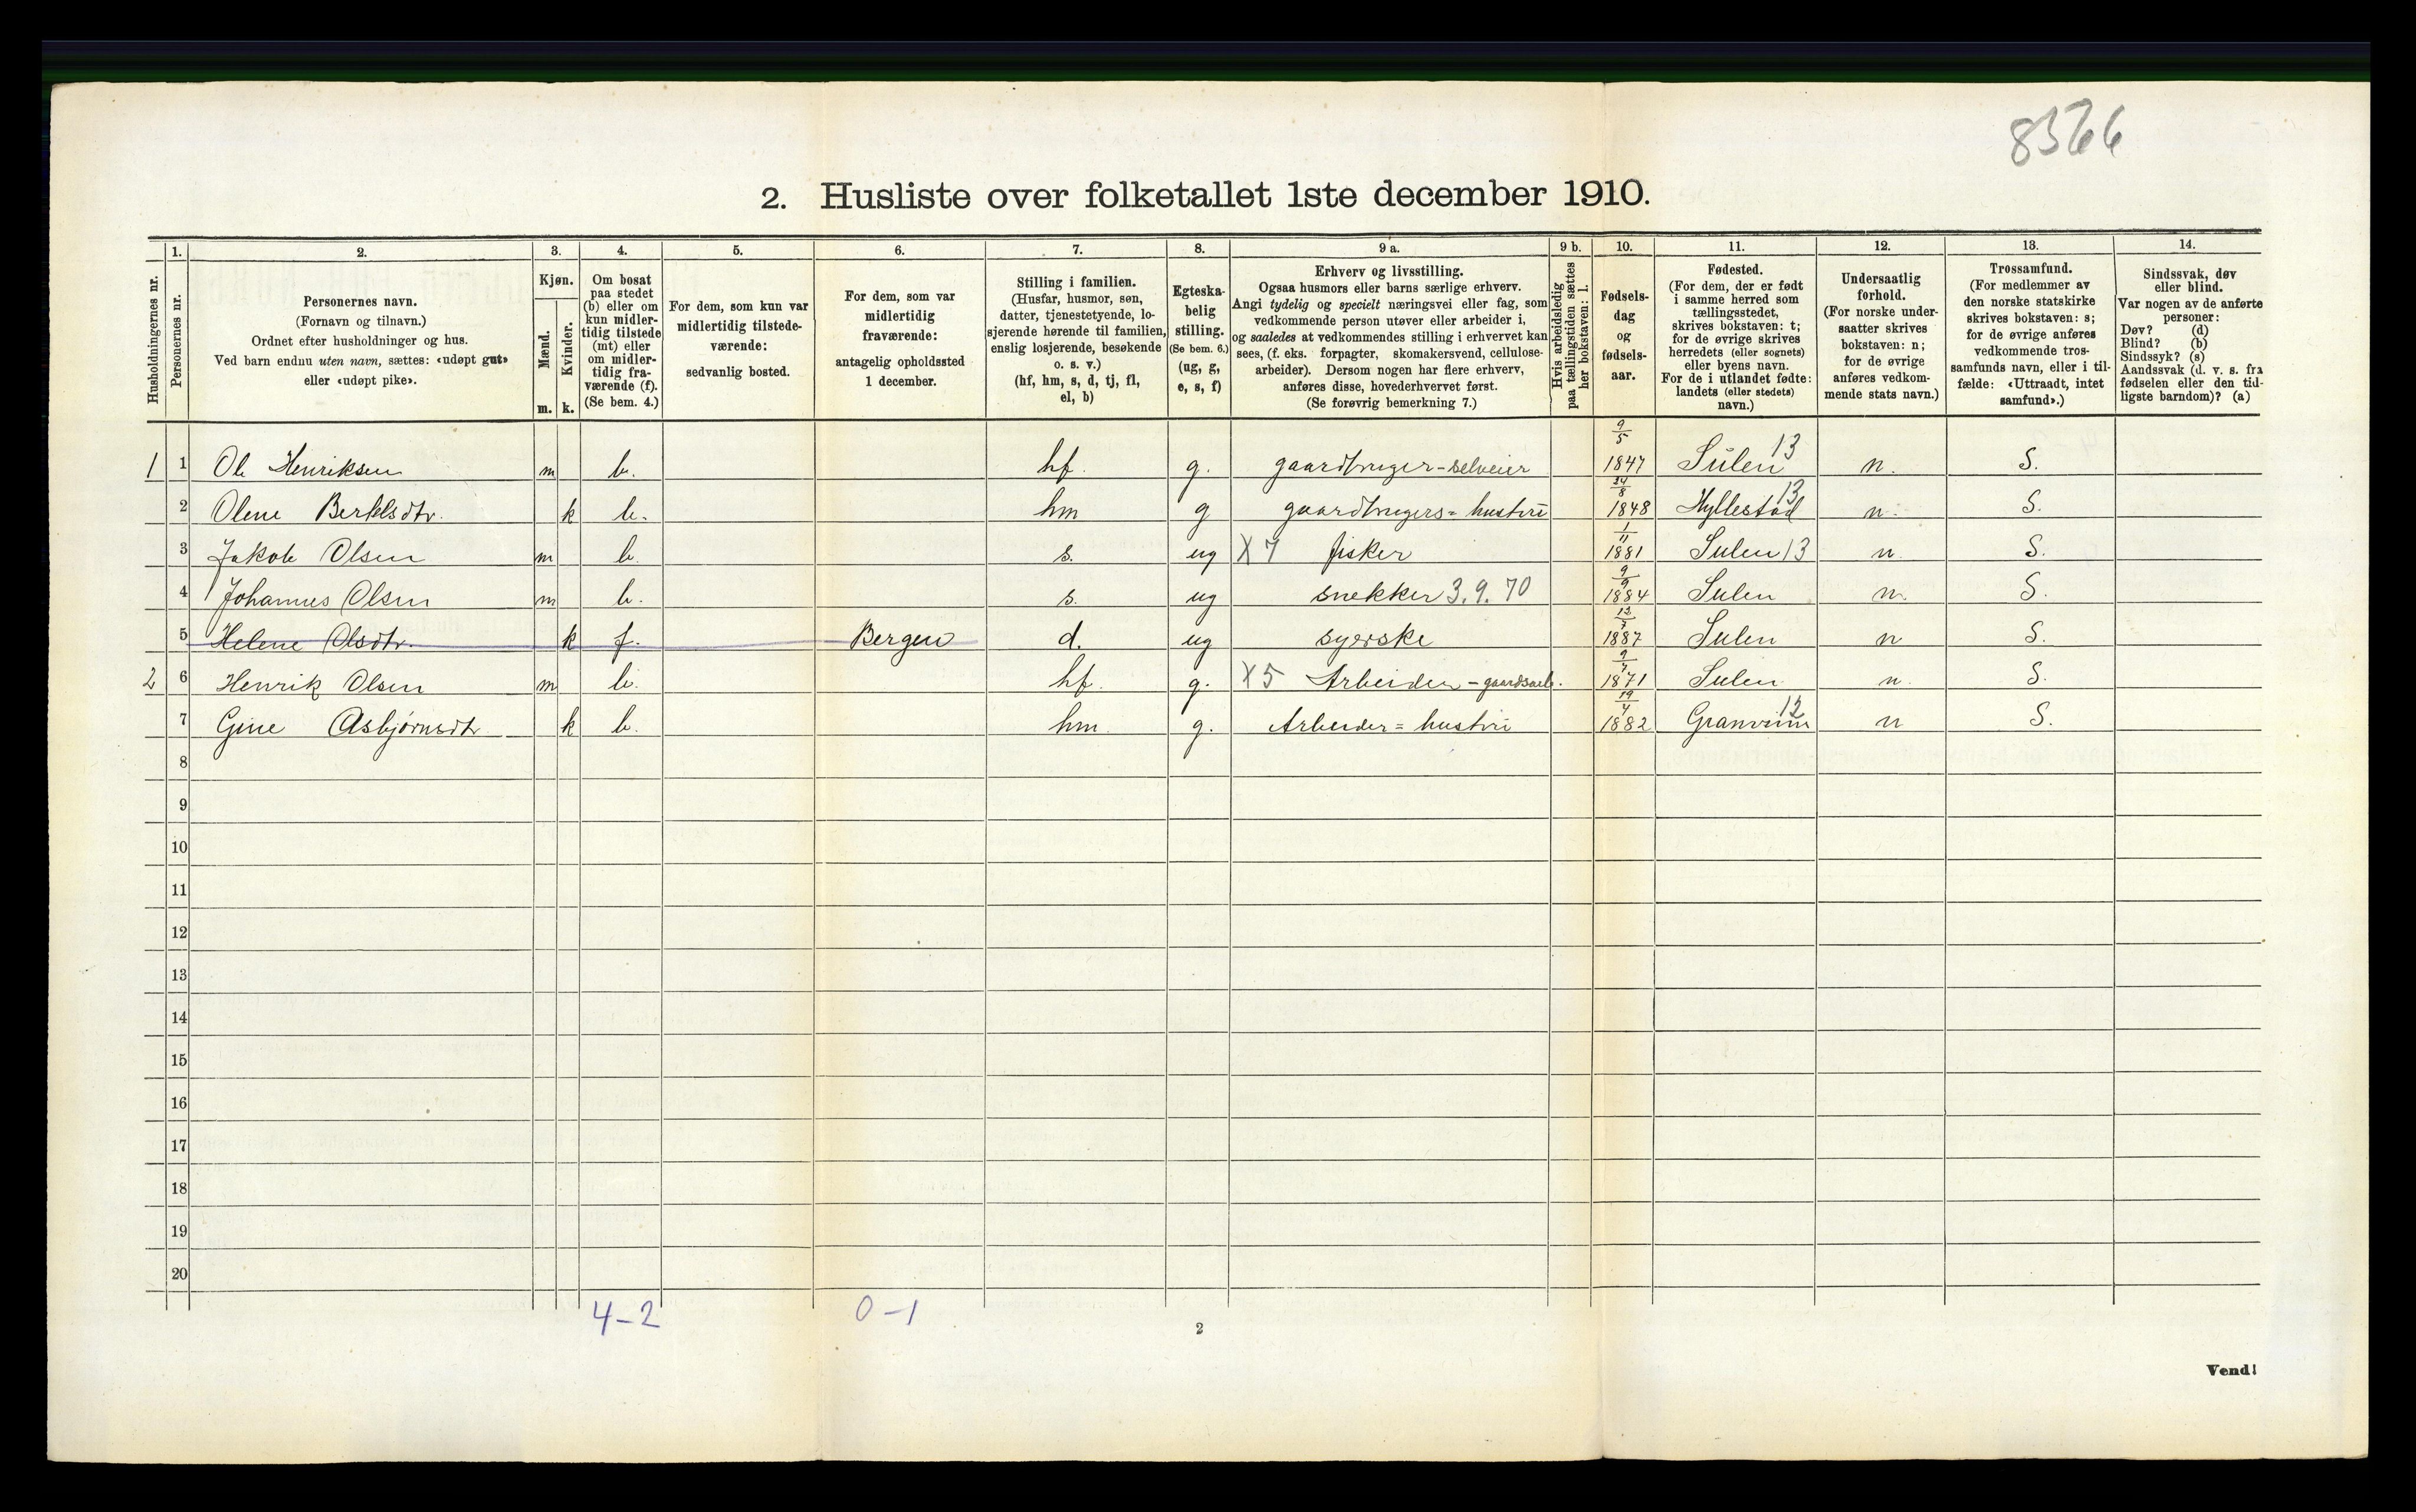 8366
2. Husliste over folketallet 1ste december 1910.
Husholdningernes nr.
1.
Personernes nr.
2.
Personernes navn.
(Fornavn og tilnavn.)
Ordnet efter husholdninger og hus.
Ved barn endnu uten navn, sættes: «udøpt gut»
eller «udøpt pike».
3.
Kjøn.
Mænd.
Kvinder.
m. k.
4.
Om bosat
paa stedet
(b) eller om
kun midler-
tidig tilstede
(mt) eller
om midler-
tidig fra-
værende (f).
(Se bem. 4.)
5.
For dem, som kun var
midlertidig tilstede-
værende:
sedvanlig bosted.
6.
For dem, som var
midlertidig
fraværende:
antagelig opholdssted
1 december.
7.
Stilling i familien.
(Husfar, husmor, søn,
datter, tjenestetyende, lo-
sjerende hørende til familien,
enslig losjerende, besøkende
o. s. v.)
(hf, hm, s, d, tj, fl,
el, b)
8.
Egteska-
belig
stilling.
(Se bem. 6.)
(ug, g,
e, s, f)
9 a.
Erhverv og livsstilling.
Ogsaa husmors eller barns særlige erhverv.
Angi tydelig og specielt næringsvei eller fag, som
vedkommende person utøver eller arbeider i,
og saaledes at vedkommendes stilling i erhvervet kan
sees, (f. eks. forpagter, skomakersvend, cellulose-
arbeider). Dersom nogen har flere erhverv,
anføres disse, hovederhvervet først.
(Se forøvrig bemerkning 7.)
9 b.
Hvis arbeidsledig
paa tællingstiden sættes
her bokstaven: l.
10.
Fødsels-
dag
og
fødsels-
aar.
11.
Fødested.
(For dem, der er født
i samme herred som
tællingsstedet,
skrives bokstaven: t;
for de øvrige skrives
herredets (eller sognets)
eller byens navn.
For de i utlandet fødte:
landets (eller stedets)
navn.)
12.
Undersaatlig
forhold.
(For norske under-
saatter skrives
bokstaven: n;
for de øvrige
anføres vedkom-
mende stats navn.)
13.
Trossamfund.
(For medlemmer av
den norske statskirke
skrives bokstaven: s;
for de øvrige anføres
vedkommende tros-
samfunds navn, eller i til-
fælde: «Uttraadt, intet
samfund».)
14.
Sindssvak, døv
eller blind.
Var nogen av de anførte
personer:
Døv? (d)
Blind? (b)
Sindssyk? (s)
Aandssvak (d. v. s. fra
fødselen eller den tid-
ligste barndom)? (a)
1 1 Ole Henriksen m b. hf. g. gaardbruger-selveier 9/5 1847 Sulen 13 n. S.
2 Olene Bertelsdtr. k b. hm g gaardbrugers= hustru 24/8 1848 Hyllestad 13 n. S.
3 Jakob Olsen m b. s. ug X7 fisker 1/11 1881 Sulen 13 n. S.
4 Johannes Olsen m b. s. ug snekker 3.9.70 9/9 1884 Sulen n. S.
5 Helene Olsdtr. k f. Bergen d. ug syerske 1887 Sulen n S.
2 6 Henrik Olsen m b. hf. g. X5 Arbeider - gaardsarb. 1871 Sulen n. S.
7 Gine Asbjørnsdtr k b. hm. g. Arbeider= hustru 19/4 1882 Granvin 12 n S.
8
9
10
11
12
13
14
15
16
17
18
19
20
4-2 0-1
2
Vend!